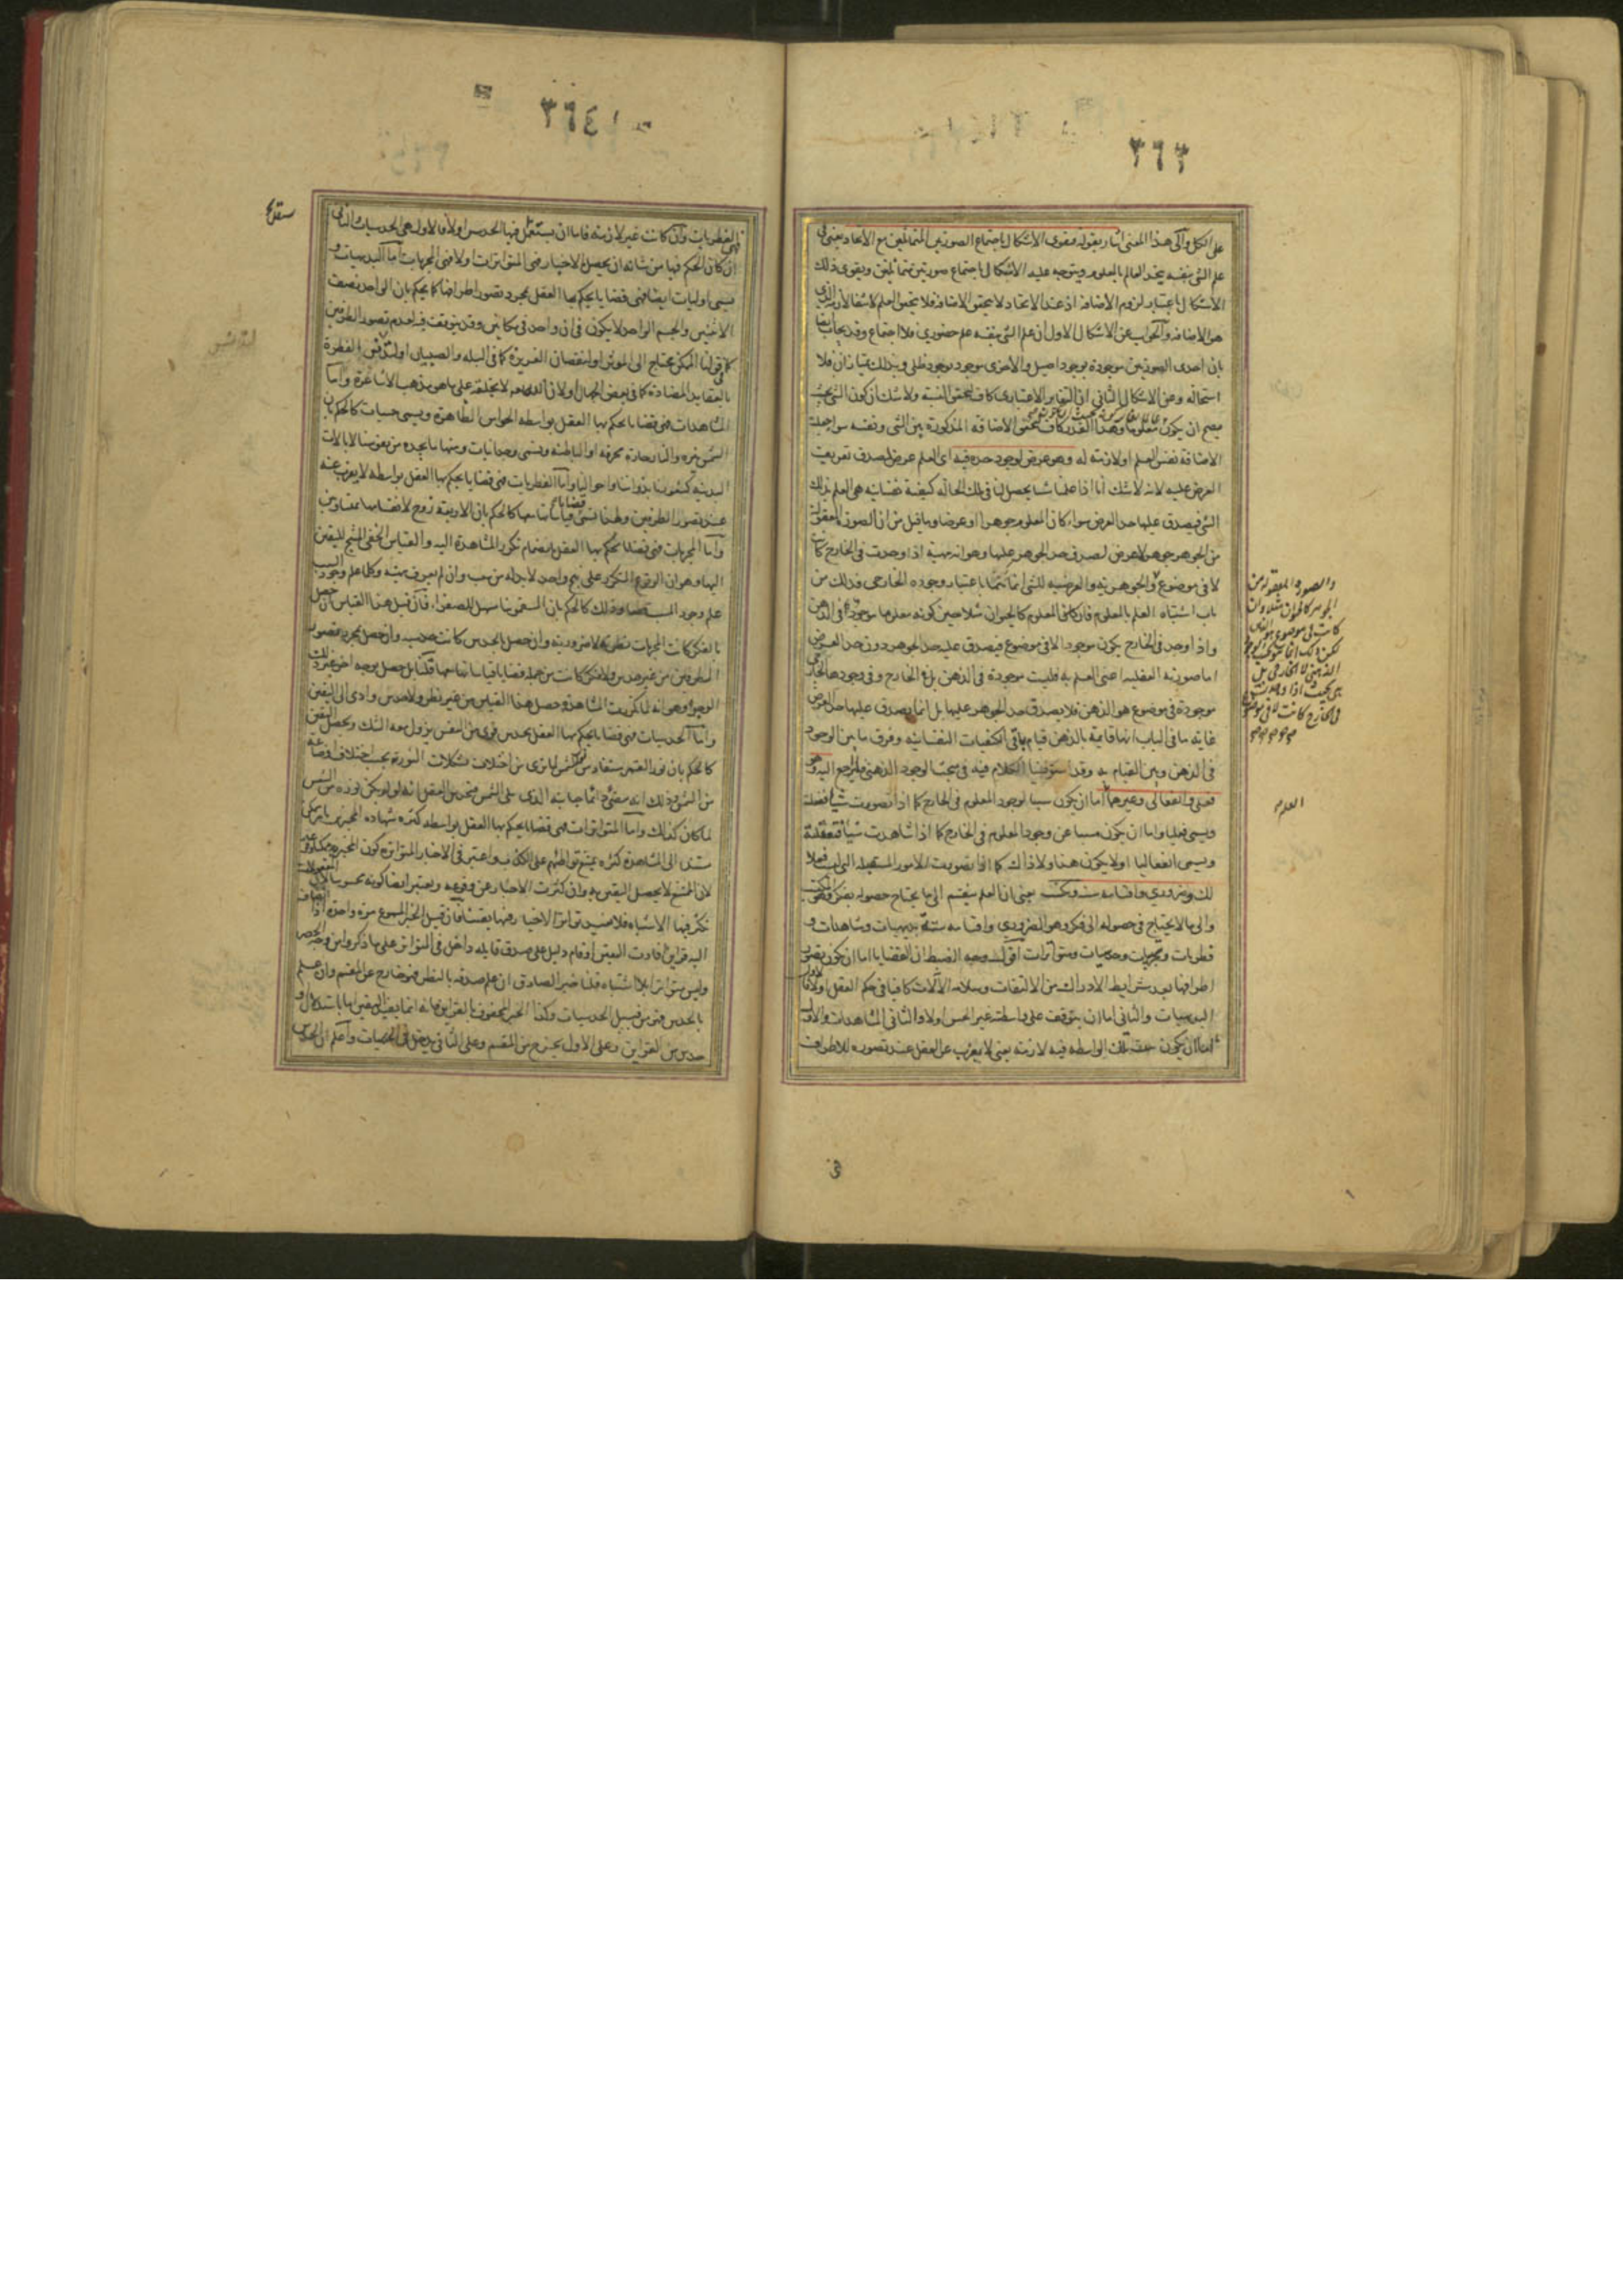 ٣٦٣
على الكل والى هذا المعنى اشار بقوله فيقوى الاشكال باجتماع الصورتين المتماثلتين مع الاتحاد يعنى ان
علم الشئ بنفسه يتحد العالم بالمعلوم ويتوجه عليه الاشكال باجتماع صورتين متماثلتين ويقوى ذلك
الاشكال باعتبار لزوم الاضافة اذ عند الاتحاد لا يتحقق الاضافة فلا يتحقق العلم لانتفاء لازمه الذى
هو الاضافة والجواب عن الاشكال الاول ان علم الشئ بنفسه علم حضورى فلا اجتماع وقد يجاب ايضا
بان احدى الصورتين موجودة بوجود اصيل والاخرى موجود بوجود ظلى وبذلك يمتازان فلا
استحالة وعن الاشكال الثانى ان التغاير الاعتبارى كاف لتحقق النسبة ولا شك ان كون الشئ بحيث
يصح ان يكون معلوما وهذا القدر كاف لتحقق الاضافة المذكورة بين الشئ ونفسه سواء جعلت
الاضافة نفس العلم او لازمة له وهو عرض لوجود حده فيه اى العلم عرض لصدق تعريف
العرض عليه لانه لا شك انا اذا علمنا شيئا يحصل لنا فى تلك الحالة كيفية نفسانية هى العلم بذلك
الشئ فيصدق عليها حد العرض سواء كان المعلوم جوهرا او عرضا وما قيل من ان الصورة المعقولة
من الجوهر جوهر لا عرض لصدق حد الجوهر عليها وهو انه مهية اذا وجدت فى الخارج كانت
لا فى موضوع والجوهرية والعرضية للشئ انما تثبتا باعتبار وجوده الخارجى فذلك من
باب اشتباه العلم بالمعلوم فان كان المعلوم كالحيوان مثلا حين كونه معلوما موجودا فى الذهن
واذا وجد فى الخارج يكون موجودا لا فى موضوع فيصدق عليه حد الجوهر دون حد العرض
اما صورته العقلية اعنى العلم به فليست موجودة فى الذهن بل فى الخارج وفى وجودها الخارجى
موجودة فى موضوع هو الذهن فلا يصدق حد الجوهر عليها بل انما يصدق عليها حد العرض
غاية ما فى الباب انها قائمة بالذهن قيام باقى الكيفيات النفسانية وفرق ما بين الوجود
فى الذهن وبين القيام به وقد استوفينا الكلام فيه فى مبحث الوجود الذهنى فليرجع اليه وهو
فعلى وانفعالى وغيرهما اما ان يكون سببا لوجود المعلوم فى الخارج كما اذا تصورت شيئا ففعلته
ويسمى فعليا واما ان يكون مسببا عن وجود المعلوم فى الخارج كما اذا شاهدت شيئا فتعقلته
ويسمى انفعاليا او لا يكون هذا ولا ذاك كما اذا تصورت الامور المستقبلة التى ليست فعلا
لك وضرورى واقسامه ستة ومكتسب يعنى ان العلم ينقسم الى ما يحتاج حصوله بفكر وهو المكتسب
والى ما لا يحتاج فى حصوله الى فكر وهو الضرورى واقسامه ستة بديهيات ومشاهدات و
فطريات ومجربات وحدسيات ومتواترات اقول وجه الضبط ان القضايا اما ان يكون تصور
اطرافها بعد شرايط الادراك من الالتفات وسلامة الآلات كافيا فى حكم العقل اولا فالاول
البديهيات والثانى اما ان يتوقف على واسطة غير الحس اولا والثانى المشاهدات والاول
اما ان يكون تلك الواسطة فيه لازمة يعنى لا يعزب عن العقل عند تصوره للاطراف
والصورة المعقولة من
الجوهر كالحيوان مثلا وان
كانت فى موضوع هو الذهن
لكن ذلك انما هو بحسب الوجود
الذهنى لا الخارجى بل
هى بحيث اذا وجدت
فى الخارج كانت لا فى موضوع
العلم
٣٦٤
فهى الفطريات وان كانت غير لازمة فاما ان يستعمل فيها الحدس اولا فالاول هى الحدسيات والثانى
ان كان الحكم فيها من شانه ان يحصل بالاخبار فهى المتواترات اولا فهى المجربات اما البديهيات و
يسمى اوليات ايضا فهى قضايا يحكم بها العقل بمجرد تصور اطرافها كما يحكم بان الواحد نصف
الاثنين والجسم الواحد لا يكون فى ان واحد فى مكانين وقد يتوقف فيه لعدم تصور الطرفين
كما فى قولنا الممكن محتاج الى المؤثر او لنقصان الغريزة كما فى البله والصبيان او لتدنس الفطرة
بالعقايد المضادة كما فى بعض الجهال او لان الله تعالى لا يخلقه على ما هو مذهب الاشاعرة واما
المشاهدات فهى قضايا يحكم بها العقل بواسطة الحواس الظاهرة ويسمى حسيات كالحكم بان
الشمس نيرة والنار حارة محرقة او الباطنة ويسمى وجدانيات ومنها ما يجده من نفوسنا لا بالالات
البدنية كشعورنا بذواتنا واحوالنا واما الفطريات فهى قضايا يحكم بها العقل بواسطة لا يعزب عنه
عند تصور الطرفين ولهذا تسمى قضايا قياساتها معها كالحكم بان الاربعة زوج لانقسامها بمتساويين
واما المجربات فهى قضايا يحكم بها العقل بانضمام تكرر المشاهدة اليه والقياس الخفى المنتج لليقين
اليها وهو ان الوقوع المتكرر على نهج واحد لا بد له من سبب وان لم يعرف مهيته وكلما علم وجود السبب
علم وجود المسبب قطعا وذلك كالحكم بان السقمونيا مسهل للصفراء فان قيل هذا القياس ان حصل
بالفكر كانت المجربات نظرية لا ضرورية وان حصل بالحدس كانت حدسية وان حصل بمجرد تصور
الطرفين من غير حدس ولا فكر كانت من جملة قضايا قياساتها معها قلنا بل حصل بوجه اخر غير تلك
الوجوه وهو انه لما تكررت المشاهدة حصل هذا القياس من غير نظر ولا حدس وادى الى اليقين
واما الحدسيات فهى قضايا يحكم بها العقل بحدس قوى من النفس يزول معه الشك ويحصل اليقين
كالحكم بان نور القمر مستفاد من الشمس لما نرى من اختلاف تشكلات النورية بحسب اختلاف اوضاعه
من الشمس وذلك انه مضئ دائما جانبه الذى يلى الشمس فيحدس العقل انه لو لم يكن نوره من الشمس
لما كان كذلك واما المتواترات فهى قضايا يحكم بها العقل بواسطة كثرة شهادة المخبرين بامر ممكن
مستند الى المشاهدة كثرة يمتنع تواطئهم على الكذب واعتبر فى الاخبار المتواترة كون المخبر به ممكنا
لان الممتنع لا يحصل اليقين به وان كثرت الاخبار عن وقوعه ويعتبر ايضا كونه محسوسا لان المعقولات
تكثر فيها الاشتباه فلا يفيد تواتر الاخبار فيها يقينا فان قيل الخبر المسموع مرة واحدة اذا انضاف
اليه قراين افادت اليقين او قام دليل على صدق قايله داخل فى التواتر على ما ذكروا من وجه الحصر
وليس متواترا بلا اشتباه قلنا خبر الصادق ان علم صدقه بالنظر فهو خارج عن المقسم وان علم
بالحدس فهو من قبيل الحدسيات وكذا الخبر المحفوف بالقراين فانه انما يفيد اليقين اما باستدلال او
حدس من القراين وعلى الاول يخرج من المقسم وعلى الثانى يدخل فى الحدسيات واعلم ان الحدس